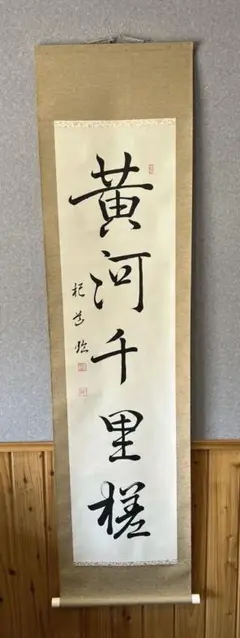 黄河千里槎